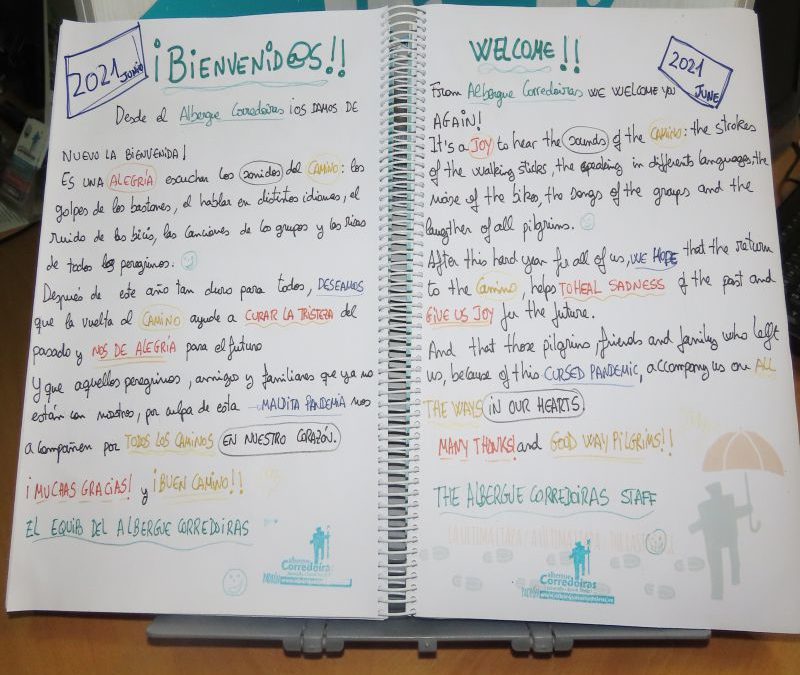 2021 JUNIO
¡BIENVENID@S!!
Desde el Albergue Corredoiras ¡OS DAMOS DE
NUEVO LA BIENVENIDA!
ES UNA ALEGRÍA escuchar los sonidos del CAMINO: los
golpes de los bastones, el hablar en distintos idiomas, el
ruido de las bicis, las canciones de los grupos y las risas
de todos los peregrinos.
Después de este año tan duro para todos, DESEAMOS
que la vuelta al CAMINO ayude a CURAR LA TRISTEZA del
pasado y NOS DE ALEGRÍA para el futuro
Y que aquellos peregrinos, amigos y familiares que ya no
están con nosotros, por culpa de esta MALDITA PANDEMIA nos
acompañen por TODOS LOS CAMINOS EN NUESTRO CORAZÓN.
¡MUCHAS GRACIAS! y ¡BUEN CAMINO!!
EL EQUIPO DEL ALBERGUE CORREDOIRAS
albergue
Corredoiras
WELCOME!!
2021
JUNE
From Albergue Corredoiras WE WELCOME YOU
AGAIN!
It's a JOY to hear the sounds of the CAMINO: the strokes
of the walking sticks, the speaking in different languages, the
noise of the bikes, the songs of the groups and the
laughter of all pilgrims.
After this hard year for all of us, WE HOPE that the return
to the Camino, helps TO HEAL SADNESS of the past and
GIVE US JOY for the future.
And that those pilgrims, friends and family who left
us, because of this CURSED PANDEMIC, accompany us on ALL
THE WAYS IN OUR HEARTS!
MANY THANKS! and GOOD WAY PILGRIMS!!
THE ALBERGUE CORREDOIRAS STAFF
albergue
Corredoiras